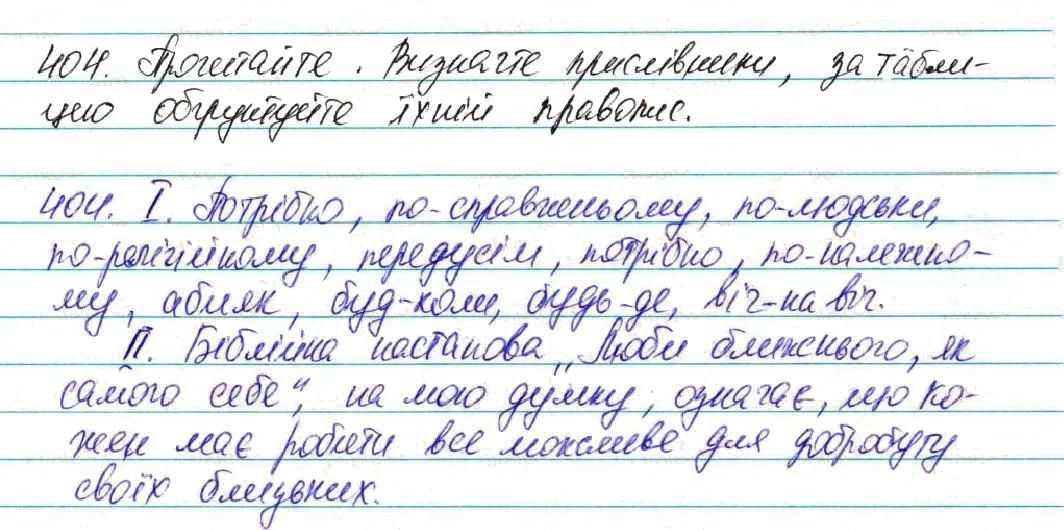 404. Прочитайте. Визначте прислівники, за табли-
цею обґрунтуйте їхній правопис.
404. І. Потрібно, по-справжньому, по-людськи,
по-релігійному, передусім, потрібно, по-належно-
му, абияк, буд-коли, будь-де, віч-на віч.
ІІ. Біблійна настанова „Люби ближнього, як
самого себе", на мою думку, означає, що ко-
жен має робити все можливе для добробуту
своїх близьких.